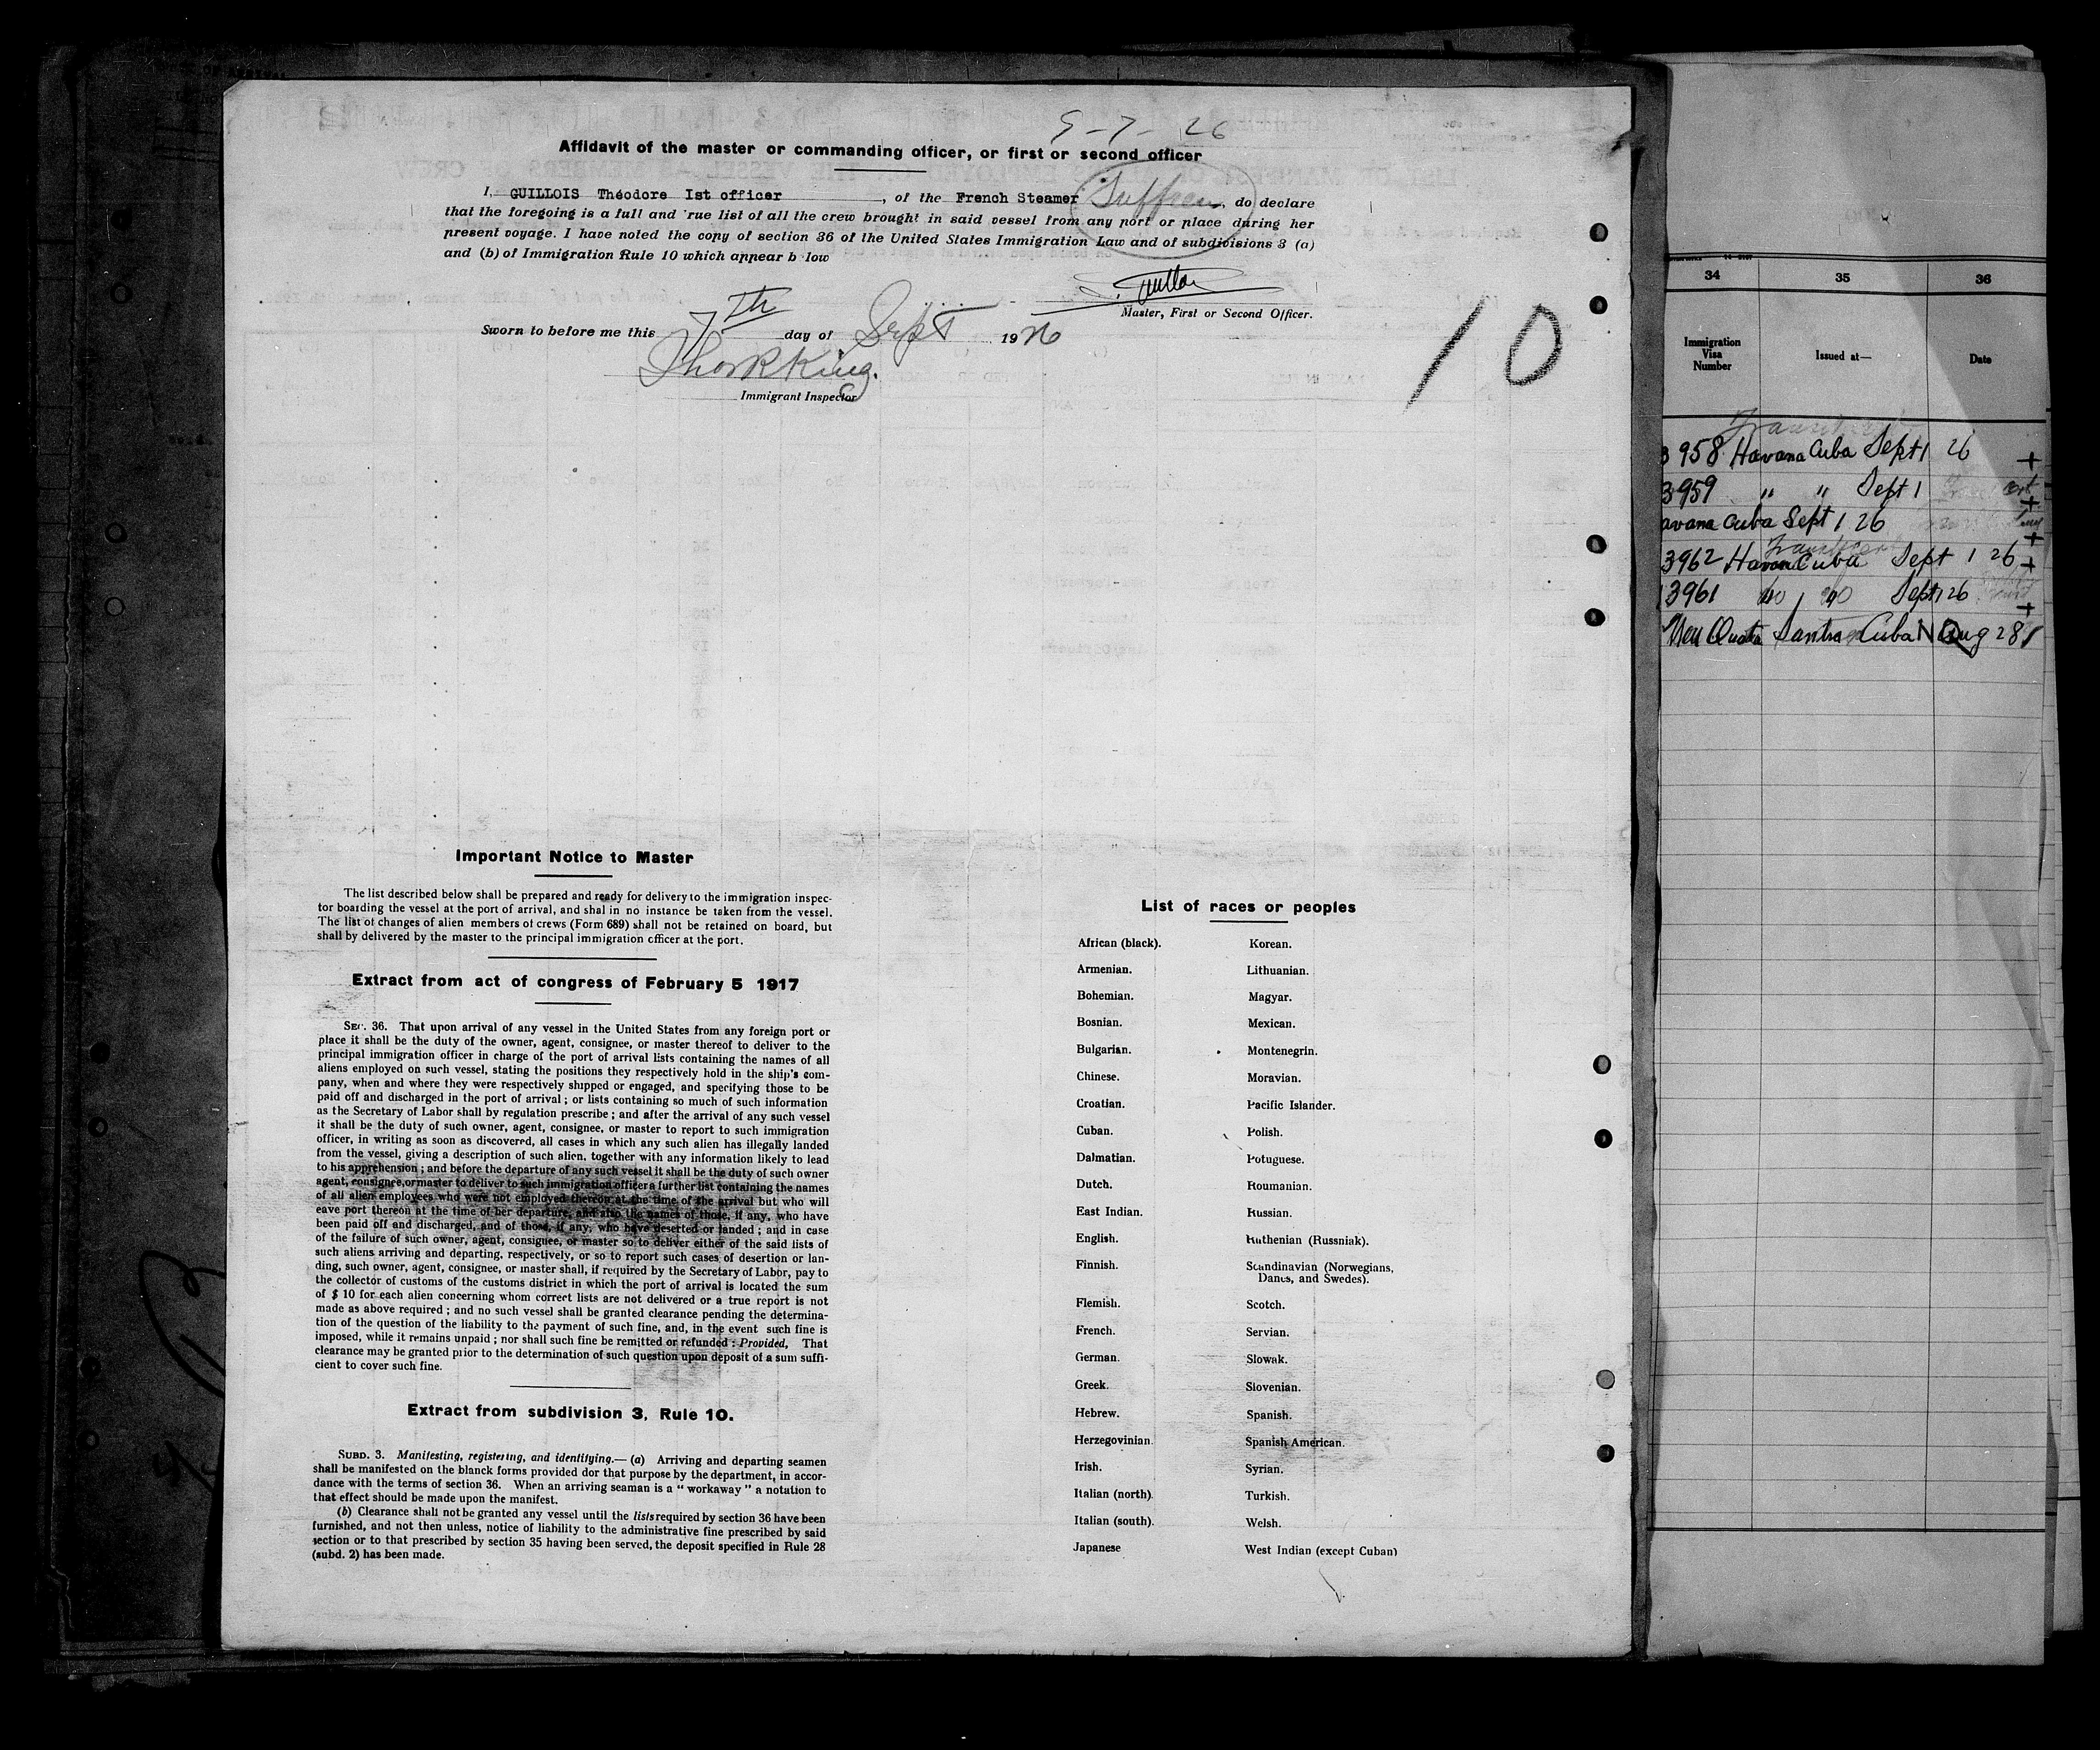 9-7-26
Affidavit of the master or commanding officer, or first or second officer
I, GUILLOIS Théodore Ist officer, of the French Steamer Suffren, do declare
that the foregoing is a full and rue list of all the crew brought in said vessel from any port or place during her
present voyage. I have noted the copy of section 36 of the United States Immigration Law and of subdivisions 3 (a)
and (b) of Immigration Rule 10 which appear b low
Master, First or Second Officer.
Sworn to before me this 7th day of Sept 1926
Immigrant Inspector
10
Important Notice to Master
The list described below shall be prepared and ready for delivery to the immigration inspec-
tor boarding the vessel at the port of arrival, and shal in no instance be taken from the vessel.
The list of changes of alien members of crews (Form 689) shall not be retained on board, but
shall by delivered by the master to the principal immigration officer at the port.
Extract from act of congress of February 5 1917
SEC. 36. That upon arrival of any vessel in the United States from any foreign port or
place it shall be the duty of the owner, agent, consignee, or master thereof to deliver to the
principal immigration officer in charge of the port of arrival lists containing the names of all
aliens employed on such vessel, stating the positions they respectively hold in the ship's com-
pany, when and where they were respectively shipped or engaged, and specifying those to be
paid off and discharged in the port of arrival ; or lists containing so much of such information
as the Secretary of Labor shall by regulation prescribe ; and after the arrival of any such vessel
it shall be the duty of such owner, agent, consignee, or master to report to such immigration
officer, in writing as soon as discovered, all cases in which any such alien has illegally landed
from the vessel, giving a description of such alien, together with any information likely to lead
to his apprehension ; and before the departure of any such vessel it shall be the duty of such owner
agent, consignee, or master to deliver to such immigration officer a further list containing the names
of all alien employees who were not employed thereon at the time of the arrival but who will
eave port thereon at the time of her departure, and also the names of those, if any, who have
been paid off and discharged, and of those, if any, who have deserted or landed ; and in case
of the failure of such owner, agent, consignee, or master so to deliver either of the said lists of
such aliens arriving and departing, respectively, or so to report such cases of desertion or lan-
ding, such owner, agent, consignee, or master shall, if required by the Secretary of Labor, pay to
the collector of customs of the customs district in which the port of arrival is located the sum
of $ 10 for each alien concerning whom correct lists are not delivered or a true report is not
made as above required ; and no such vessel shall be granted clearance pending the determina-
tion of the question of the liability to the payment of such fine, and, in the event such fine is
imposed, while it remains unpaid ; nor shall such fine be remitted or refunded : Provided, That
clearance may be granted prior to the determination of such question upon deposit of a sum suffi-
cient to cover such fine.
Extract from subdivision 3, Rule 10.
SUBD. 3. Manifesting, registering, and identifying.— (a) Arriving and departing seamen
shall be manifested on the blanck forms provided dor that purpose by the department, in accor-
dance with the terms of section 36. When an arriving seaman is a " workaway " a notation to
that effect should be made upon the manifest.
(b) Clearance shall not be granted any vessel until the lists required by section 36 have been
furnished, and not then unless, notice of liability to the administrative fine prescribed by said
section or to that prescribed by section 35 having been served, the deposit specified in Rule 28
(subd. 2) has been made.
List of races or peoples
African (black).
Armenian.
Bohemian.
Bosnian.
Bulgarian.
Chinese.
Croatian.
Cuban.
Dalmatian.
Dutch.
East Indian.
English.
Finnish.
Flemish.
French.
German.
Greek.
Hebrew.
Herzegovinian.
Irish.
Italian (north).
Italian (south).
Japanese
Korean.
Lithuanian.
Magyar.
Mexican.
Montenegrin.
Moravian.
Pacific Islander.
Polish.
Potuguese.
Roumanian.
Russian.
Ruthenian (Russniak).
Scandinavian (Norwegians,
Danes, and Swedes).
Scotch.
Servian.
Slowak.
Slovenian.
Spanish.
Spanish American.
Syrian.
Turkish.
Welsh.
West Indian (except Cuban)
34 35 36
Immigration
Visa
Number
Issued at—
Date
3958 Havana Cuba Sept 1 26
3959 " " Sept 1
avana Cuba Sept 1 26
3962 Havana Cuba Sept 1 26
3961 Sept 1 26
Non Quota Cuba Aug 28